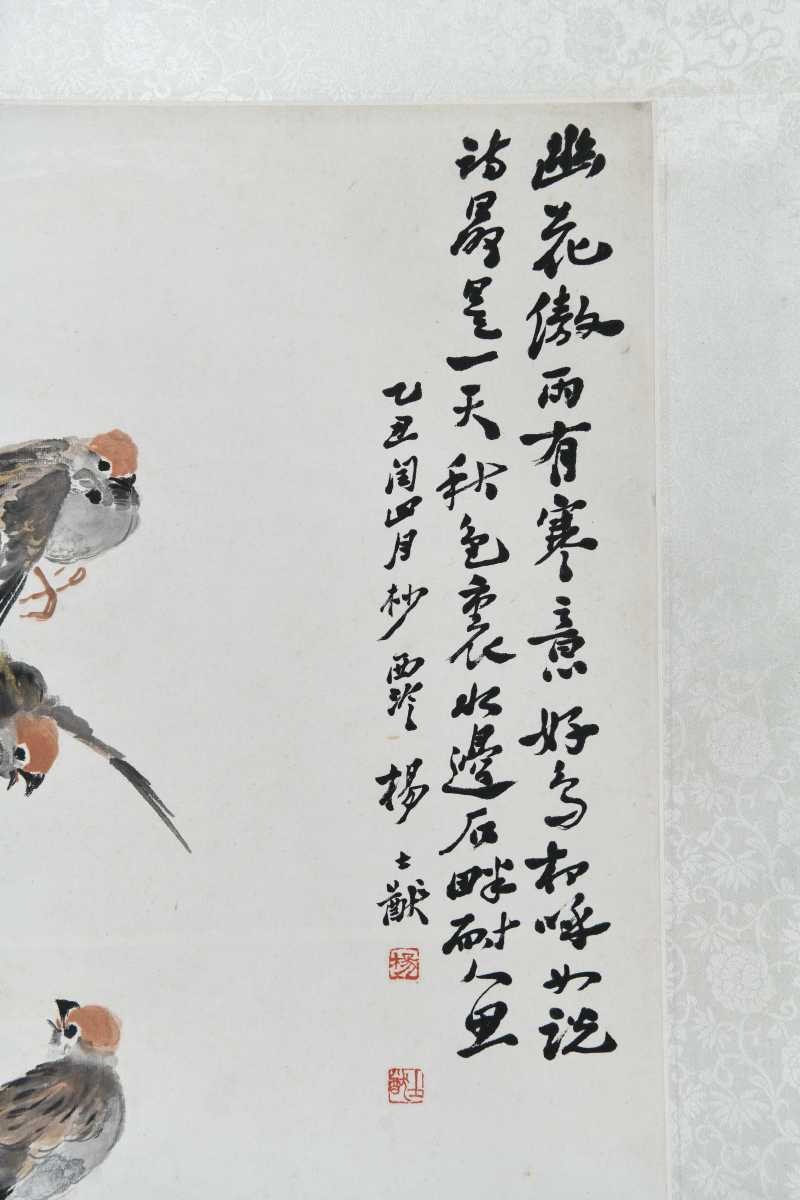 幽花傲雨有寒意好鸟相呼如说
诗最是一天秋色里水邊石畔耐人思
乙丑闰四月杪西泠楊士猷
楊
士猷